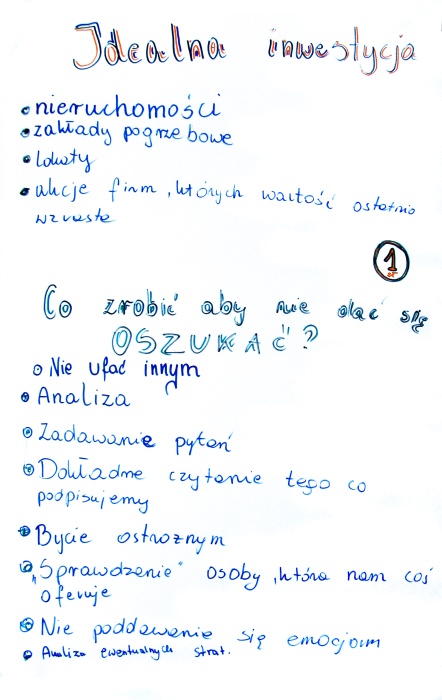 Idealna inwestycja
nieruchomości
zakłady pogrzebowe
lokaty
akcje firm, których wartość ostatnio
wzrosła
1
Co zrobić aby nie dać się
OSZUKAĆ?
Nie ufać innym
Analiza
Zadawanie pytań
Dokładne czytanie tego co
podpisujemy
Bycie ostrożnym
"Sprawdzenie" osoby, która nam coś
oferuje
Nie poddawanie się emocjom
Analiza ewentualnych strat.